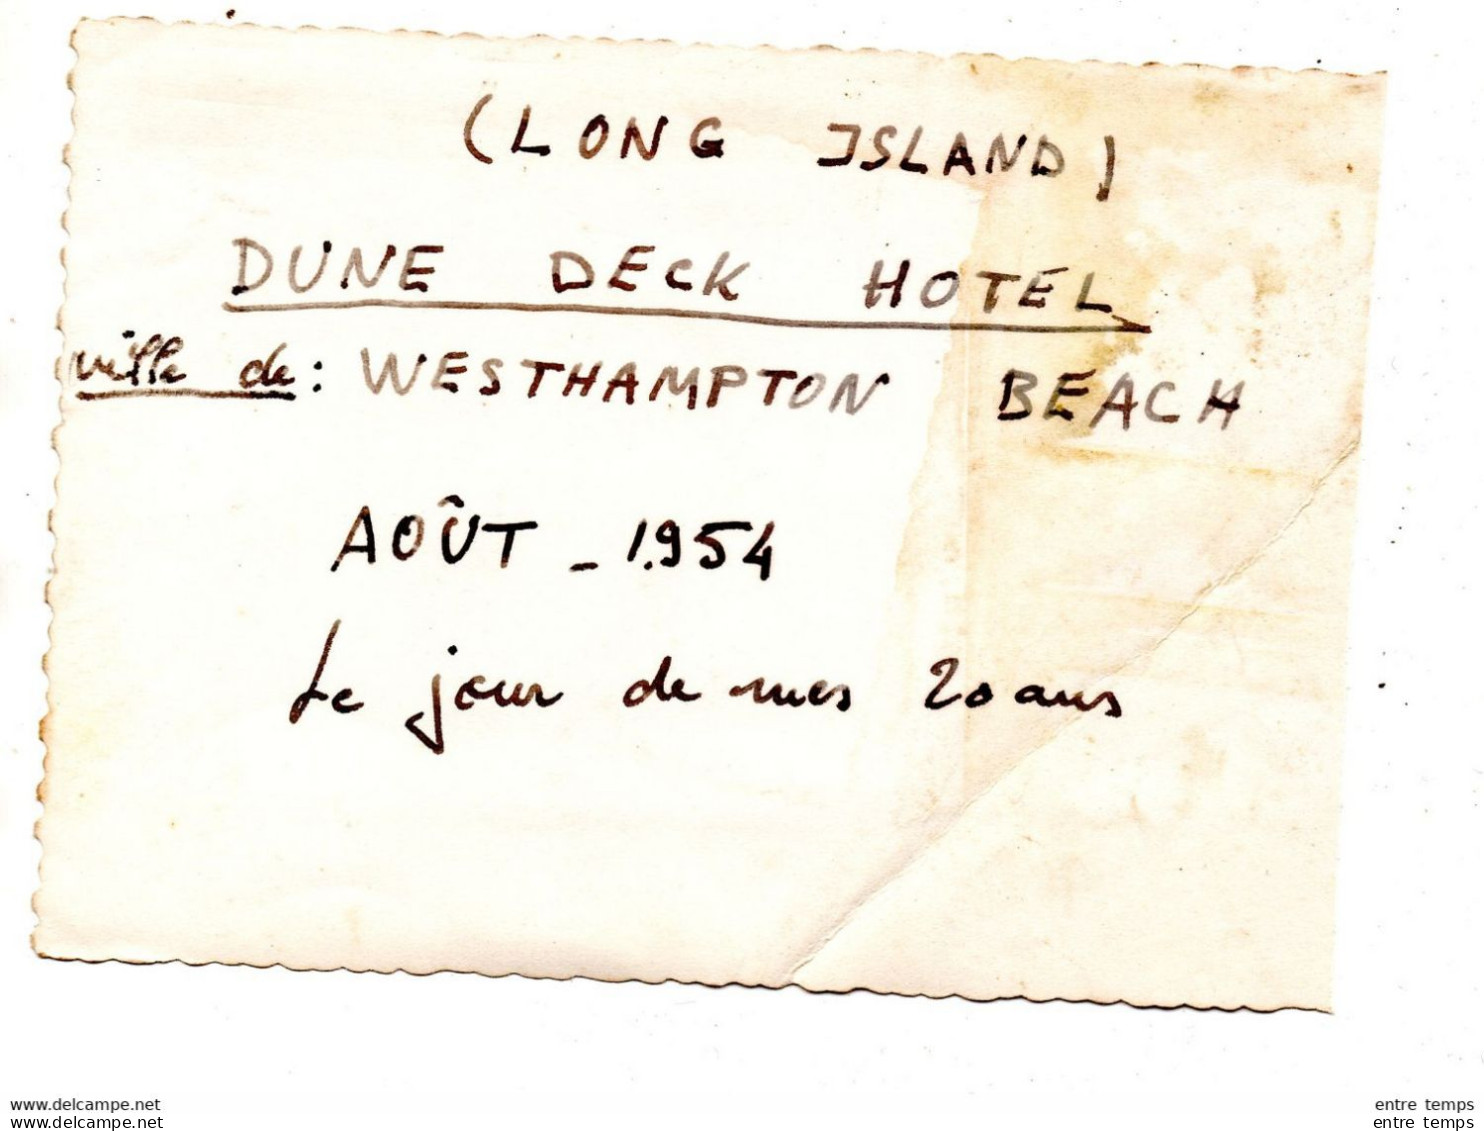 (LONG ISLAND)
DUNE DECK HOTEL
ville de: WESTHAMPTON BEACH
AOÛT - 1.954
Le jour de mes 20 ans
www.delcampe.net
www.delcampe.net
entre temps
entre temps